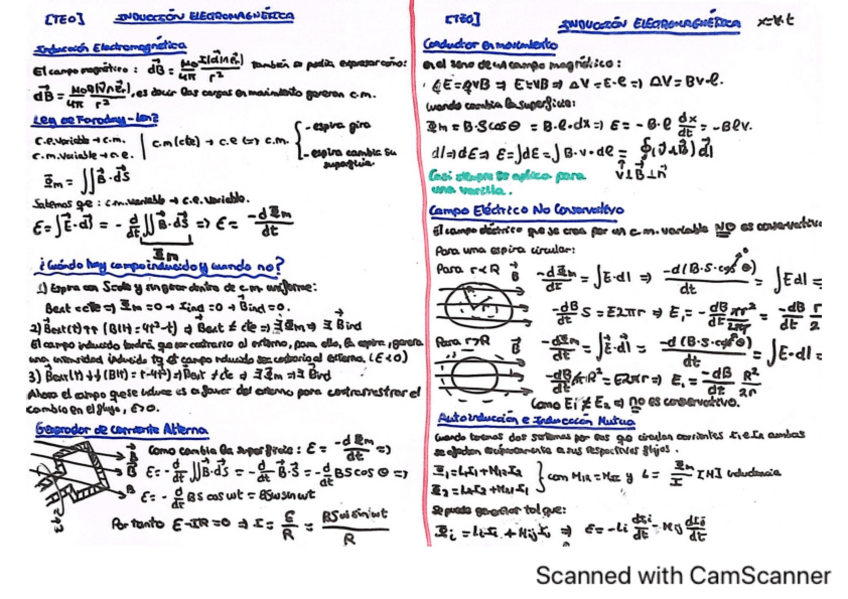 [TEO] INDUCCIÓN ELECTROMAGNÉTICA
Inducción Electromagnética
El campo magnético: dB = μ₀/4π I(dl∧r̂)/r² también se podía expresar como:
dB = μ₀/4π Q(v∧r̂)/r², es decir las cargas en movimiento generan c.m.
Ley de Faraday-Lenz
C.e. Variable → c.m.
c.m. Variable → c.e.
c.m (cte) → c.e (=) c.m.
- espira gira
- espira cambia su superficie.
Φm = ∬B·dS
Sabemos que: c.m. variable → c.e. variable.
ε = ∫E·dl = - d/dt ∬B·dS => ε = -dΦm/dt
Φm
¿Cuándo hay campo inducido y cuando no?
1) Espira con S cte y sin girar dentro de c.m. uniforme:
Bext = cte => Φm = 0 → Iind = 0 → Bind = 0.
2) Bext(t)↑↑ (B(t) = 4t²-t) => Bext ≠ cte => ∃Φm => ∃Bind
El campo inducido tendrá que ser contrario al externo, para ello, la espira, genera
una intensidad inducida tq el campo inducido sea contrario al externo. (ε<0)
3) Bext(t)↓↓ (B(t) = t-4t²) => Bext ≠ cte => ∃Φm => ∃Bind
Ahora el campo que se induce es a favor del externo para contrarrestrar el
cambio en el flujo, ε>0.
Generador de corriente Alterna
Como cambia la superficie: ε = -dΦm/dt =>
ε = -d/dt ∬B·dS = -d/dt B·S = -d/dt BS cos θ =>
ε = -d/dt BS cos ωt = BSω sin ωt
Por tanto ε-IR=0 => I = ε/R = BSω sin ωt / R
[TEO] INDUCCIÓN ELECTROMAGNÉTICA x=v·t
Conductor en movimiento
en el seno de un campo magnético:
QE = QvB => E = vB => ΔV = E·l => ΔV = Bv·l.
cuando cambia la superficie:
Φm = B·S cos θ = B·l·dx => ε = -B·l dx/dt = -Blv.
dl => dε => ε = ∫dε = ∫B·v·dl = ∮(v∧B)dl
v⊥B⊥n
Casi siempre se aplica para
una varilla.
Campo Eléctrico No Conservativo
El campo eléctrico que se crea por un c.m. variable NO es conservativo
Para una espira circular:
Para r<R B -dΦm/dt = ∫E·dl => -d(B·S·cos θ)/dt = ∫Edl =
-dB/dt S = E2πr => E₁ = -dB/dt πr²/2πr = -dB/dt r/2
Para r>R B -dΦm/dt = ∫E·dl = -d(B·S·cos θ)/dt = ∫E·dl =
-dB/dt πR² = E2πr => E₁ = -dB/dt R²/2r
Como E₁ ≠ E₂ => no es conservativo.
Autoinducción e Inducción Mutua
cuando tenemos dos sistemas por los que circulan corrientes I₁ e I₂ ambas
se afectan recíprocamente a sus respectivos flujos.
Φ₁ = L₁I₁+M₁₂I₂
Φ₂ = L₂I₂+M₂₁I₁
con M₁₂=M₂₁ y L = Φm/I [H] inductancia
Se puede generalizar tal que:
Φi = LiIi + MijIj => ε = -Li dIi/dt - Mij dIj/dt
Scanned with CamScanner